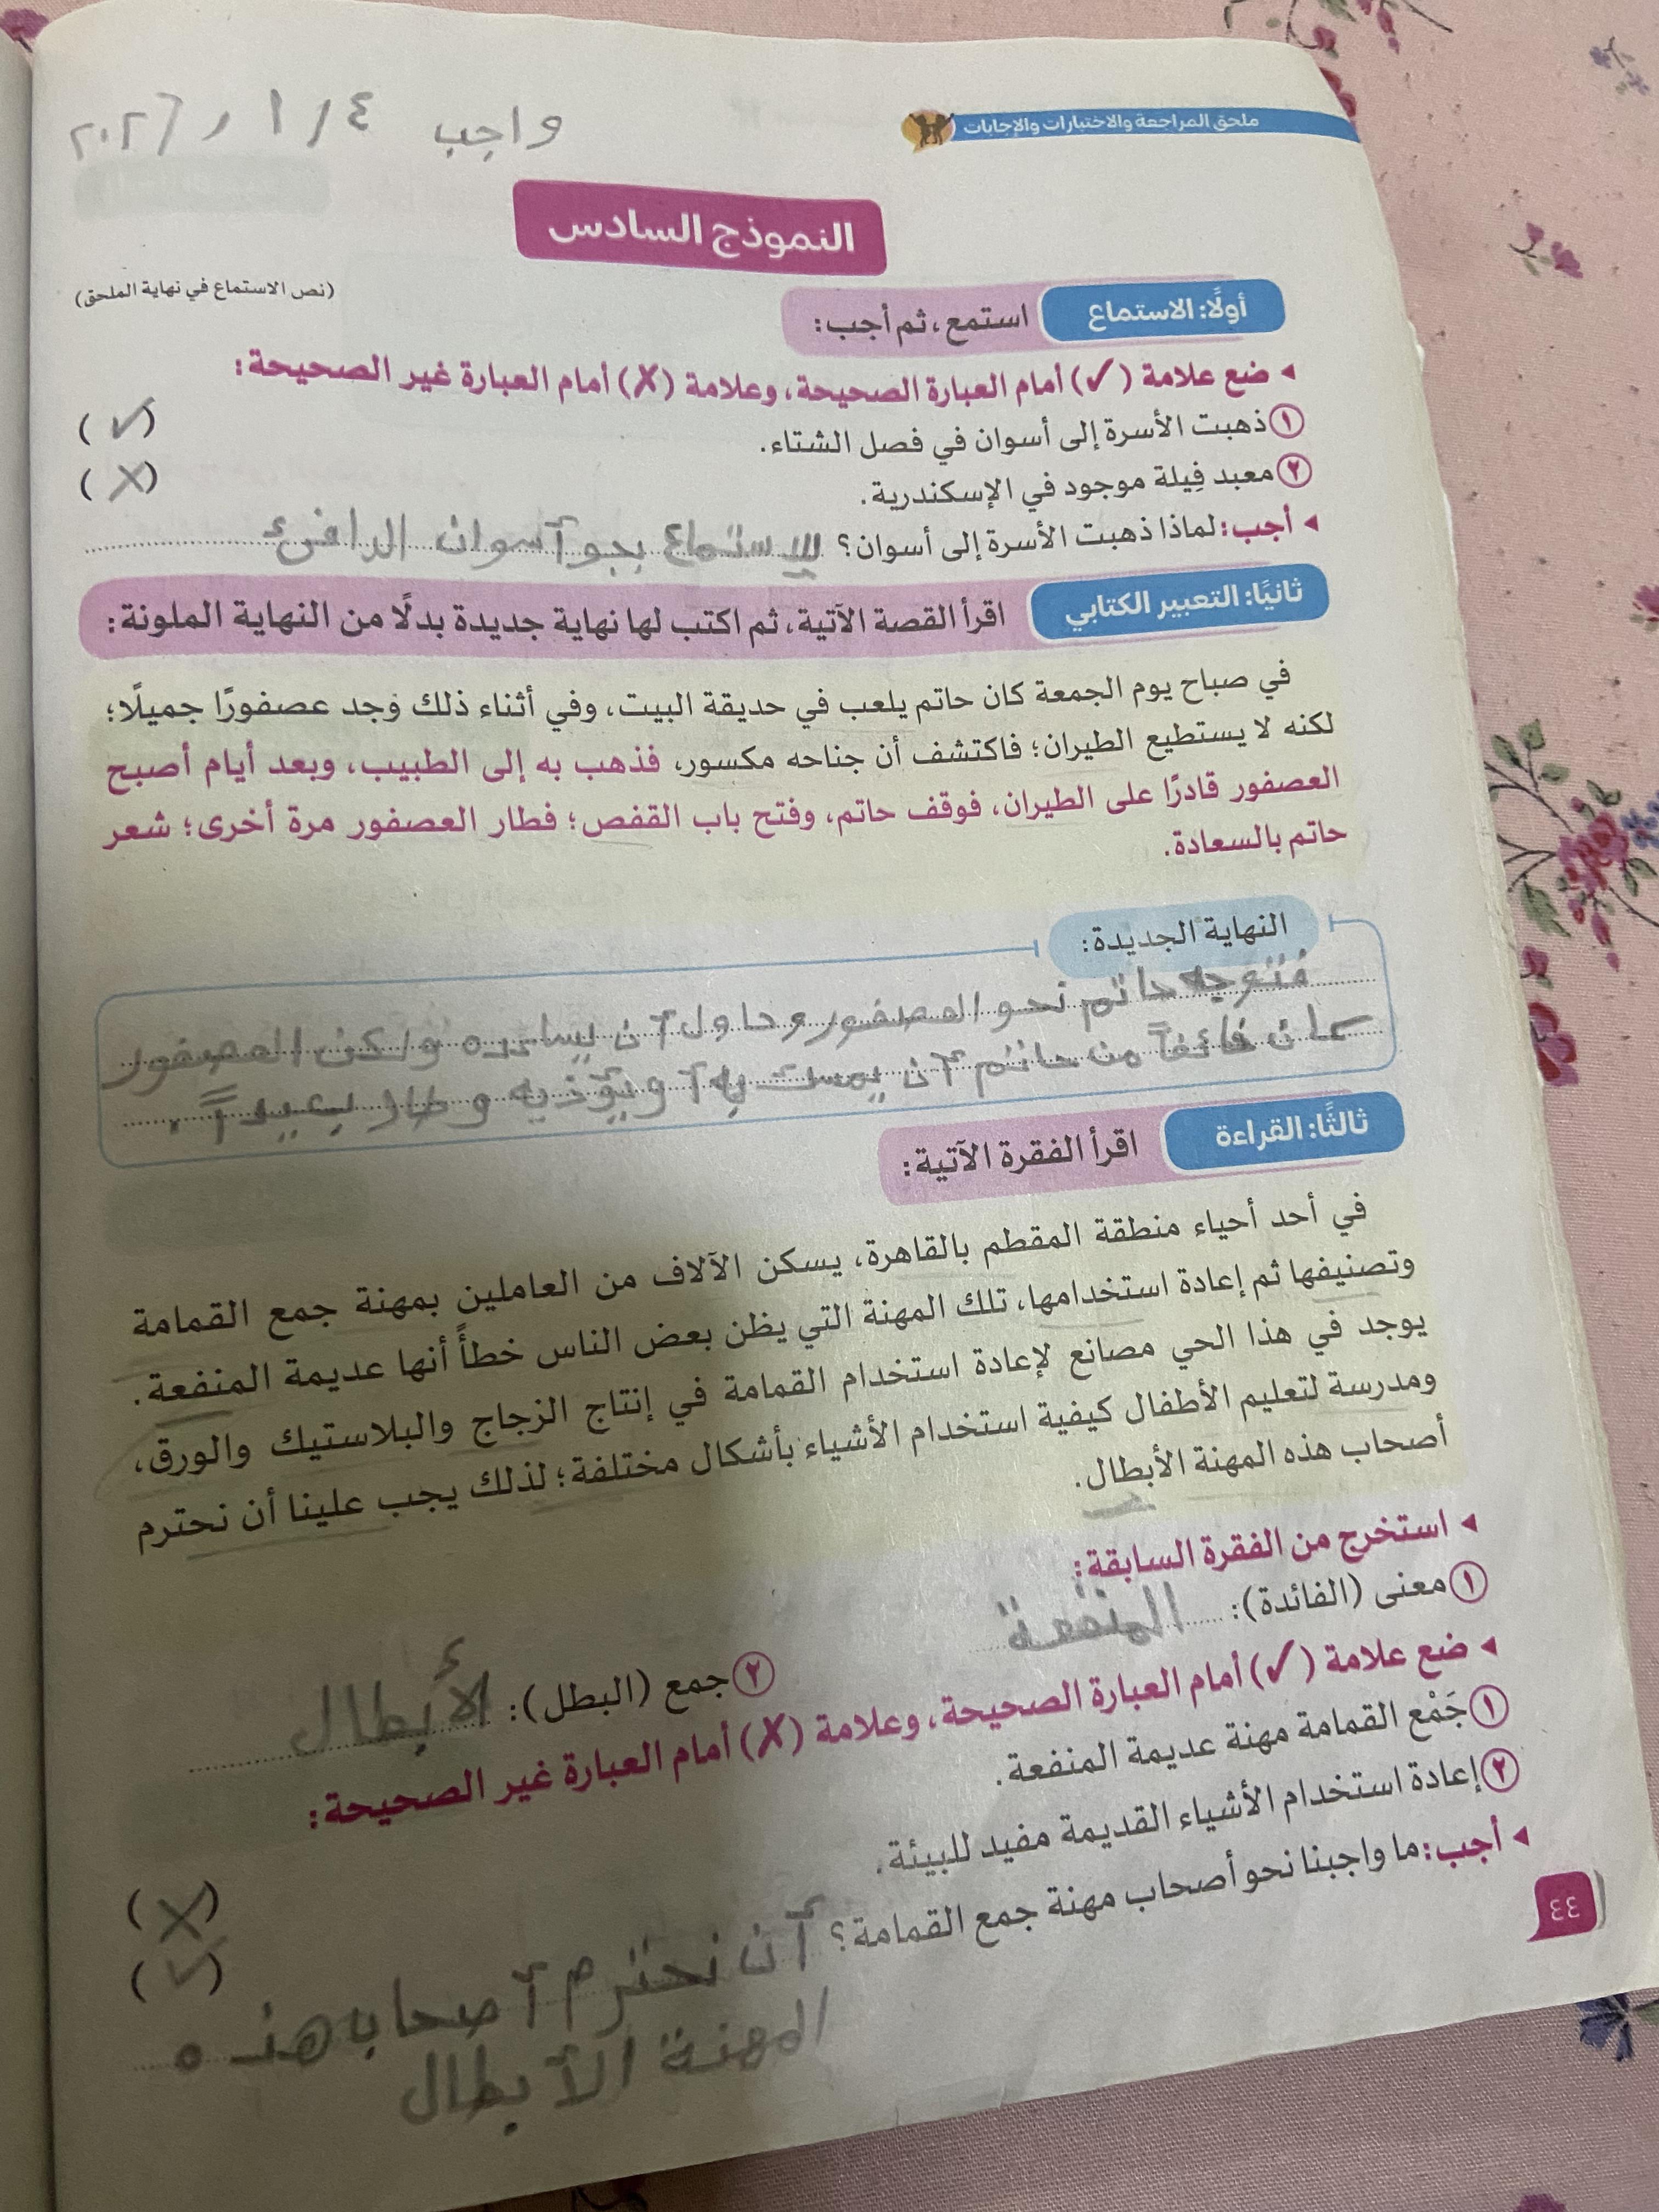 ملحق المراجعة والاختبارات والإجابات
واجب ٤ / ١ / ٢٠٢٦
النموذج السادس
(نص الاستماع في نهاية الملحق)
أولًا: الاستماع استمع، ثم أجب:
◂ ضع علامة (✓) أمام العبارة الصحيحة، وعلامة (✗) أمام العبارة غير الصحيحة:
١ ذهبت الأسرة إلى أسوان في فصل الشتاء. (✓)
٢ معبد فِيلة موجود في الإسكندرية. (✗)
◂ أجب: لماذا ذهبت الأسرة إلى أسوان؟ بجو آسوان الدافئ
ثانيًا: التعبير الكتابي اقرأ القصة الآتية، ثم اكتب لها نهاية جديدة بدلًا من النهاية الملونة:
في صباح يوم الجمعة كان حاتم يلعب في حديقة البيت، وفي أثناء ذلك وجد عصفورًا جميلًا؛
لكنه لا يستطيع الطيران؛ فاكتشف أن جناحه مكسور، فذهب به إلى الطبيب، وبعد أيام أصبح
العصفور قادرًا على الطيران، فوقف حاتم، وفتح باب القفص؛ فطار العصفور مرة أخرى؛ شعر
حاتم بالسعادة.
النهاية الجديدة:
حاتم نحو العصفور وحاول آن يساعده ولكن العصفور
كان خائفاً من حاتم آن يمسك به آو يؤذيه وطار بعيداً.
ثالثًا: القراءة اقرأ الفقرة الآتية:
في أحد أحياء منطقة المقطم بالقاهرة، يسكن الآلاف من العاملين بمهنة جمع القمامة
وتصنيفها ثم إعادة استخدامها، تلك المهنة التي يظن بعض الناس خطأً أنها عديمة المنفعة.
يوجد في هذا الحي مصانع لإعادة استخدام القمامة في إنتاج الزجاج والبلاستيك والورق،
ومدرسة لتعليم الأطفال كيفية استخدام الأشياء بأشكال مختلفة؛ لذلك يجب علينا أن نحترم
أصحاب هذه المهنة الأبطال.
◂ استخرج من الفقرة السابقة:
١ معنى (الفائدة): المنفعة ٢ جمع (البطل): الأبطال
◂ ضع علامة (✓) أمام العبارة الصحيحة، وعلامة (✗) أمام العبارة غير الصحيحة:
١ جَمْع القمامة مهنة عديمة المنفعة. (✗)
٢ إعادة استخدام الأشياء القديمة مفيد للبيئة. (✓)
◂ أجب: ما واجبنا نحو أصحاب مهنة جمع القمامة؟ آن نحترم آصحاب هذه
المهنة الآبطال
٤٤